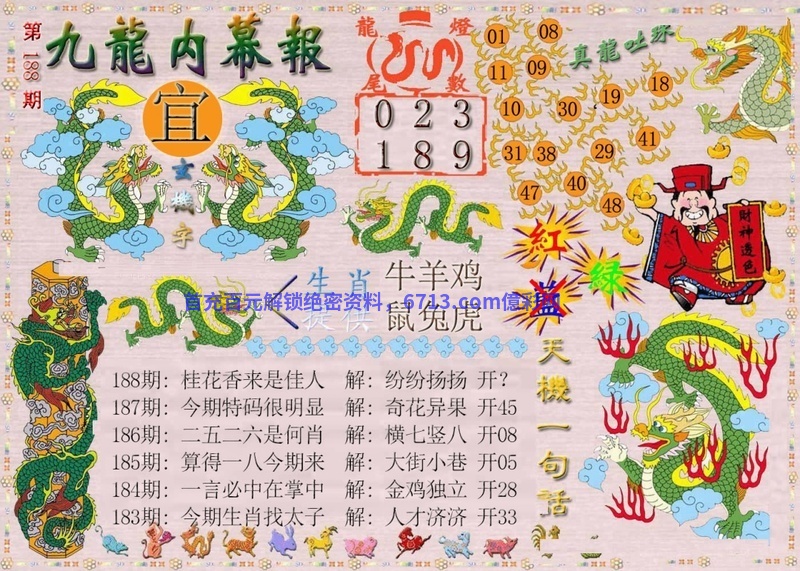 第188期
九龍内幕報
宜
玄機字
龍燈
尾數
0 2 3
1 8 9
真龍吐珠
01 08
11 09
10 30 19 18
31 38 29 41
47 40 48
財神透色
紅
藍
绿
生肖
提供
牛羊鸡
鼠兔虎
首充百元解锁绝密资料，6713.com億彩
188期: 桂花香来是佳人 解: 纷纷扬扬 开?
187期: 今期特码很明显 解: 奇花异果 开45
186期: 二五二六是何肖 解: 横七竖八 开08
185期: 算得一八今期来 解: 大街小巷 开05
184期: 一言必中在掌中 解: 金鸡独立 开28
183期: 今期生肖找太子 解: 人才济济 开33
天機一句話